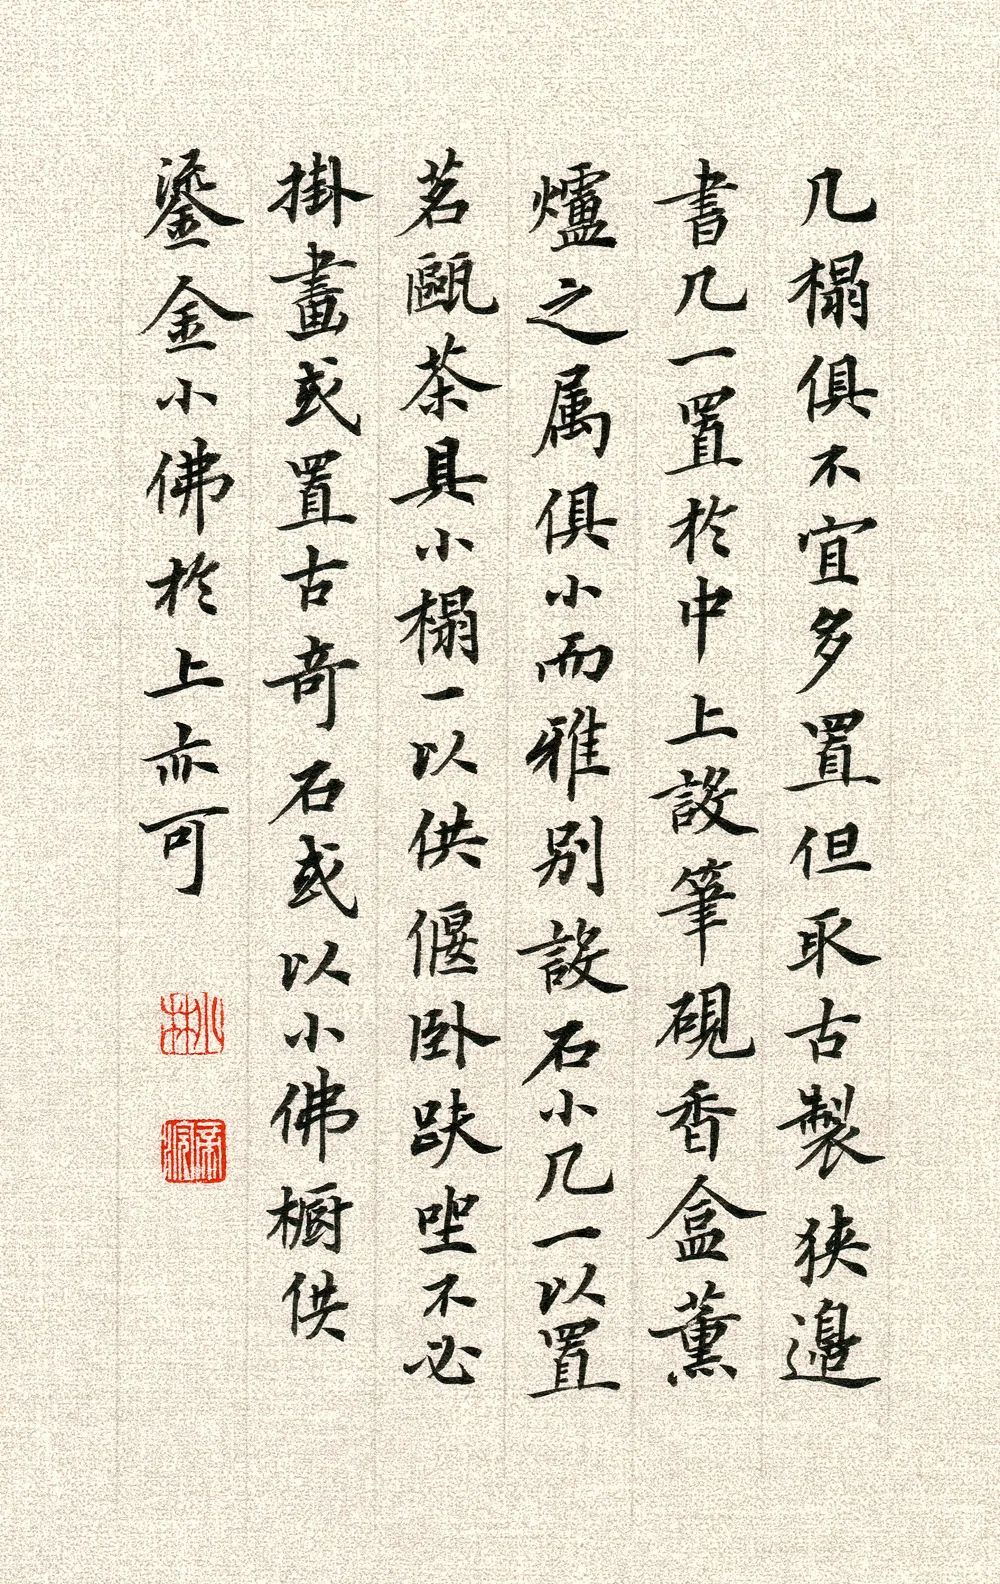 几榻俱不宜多置但取古製狹邉
書几一置於中上設筆硯香盒薰
爐之属俱小而雅别設石小几一以置
茗甌茶具小榻一以供偃卧趺坐不必
掛畫或置古奇石或以小佛櫥供
鎏金小佛於上亦可